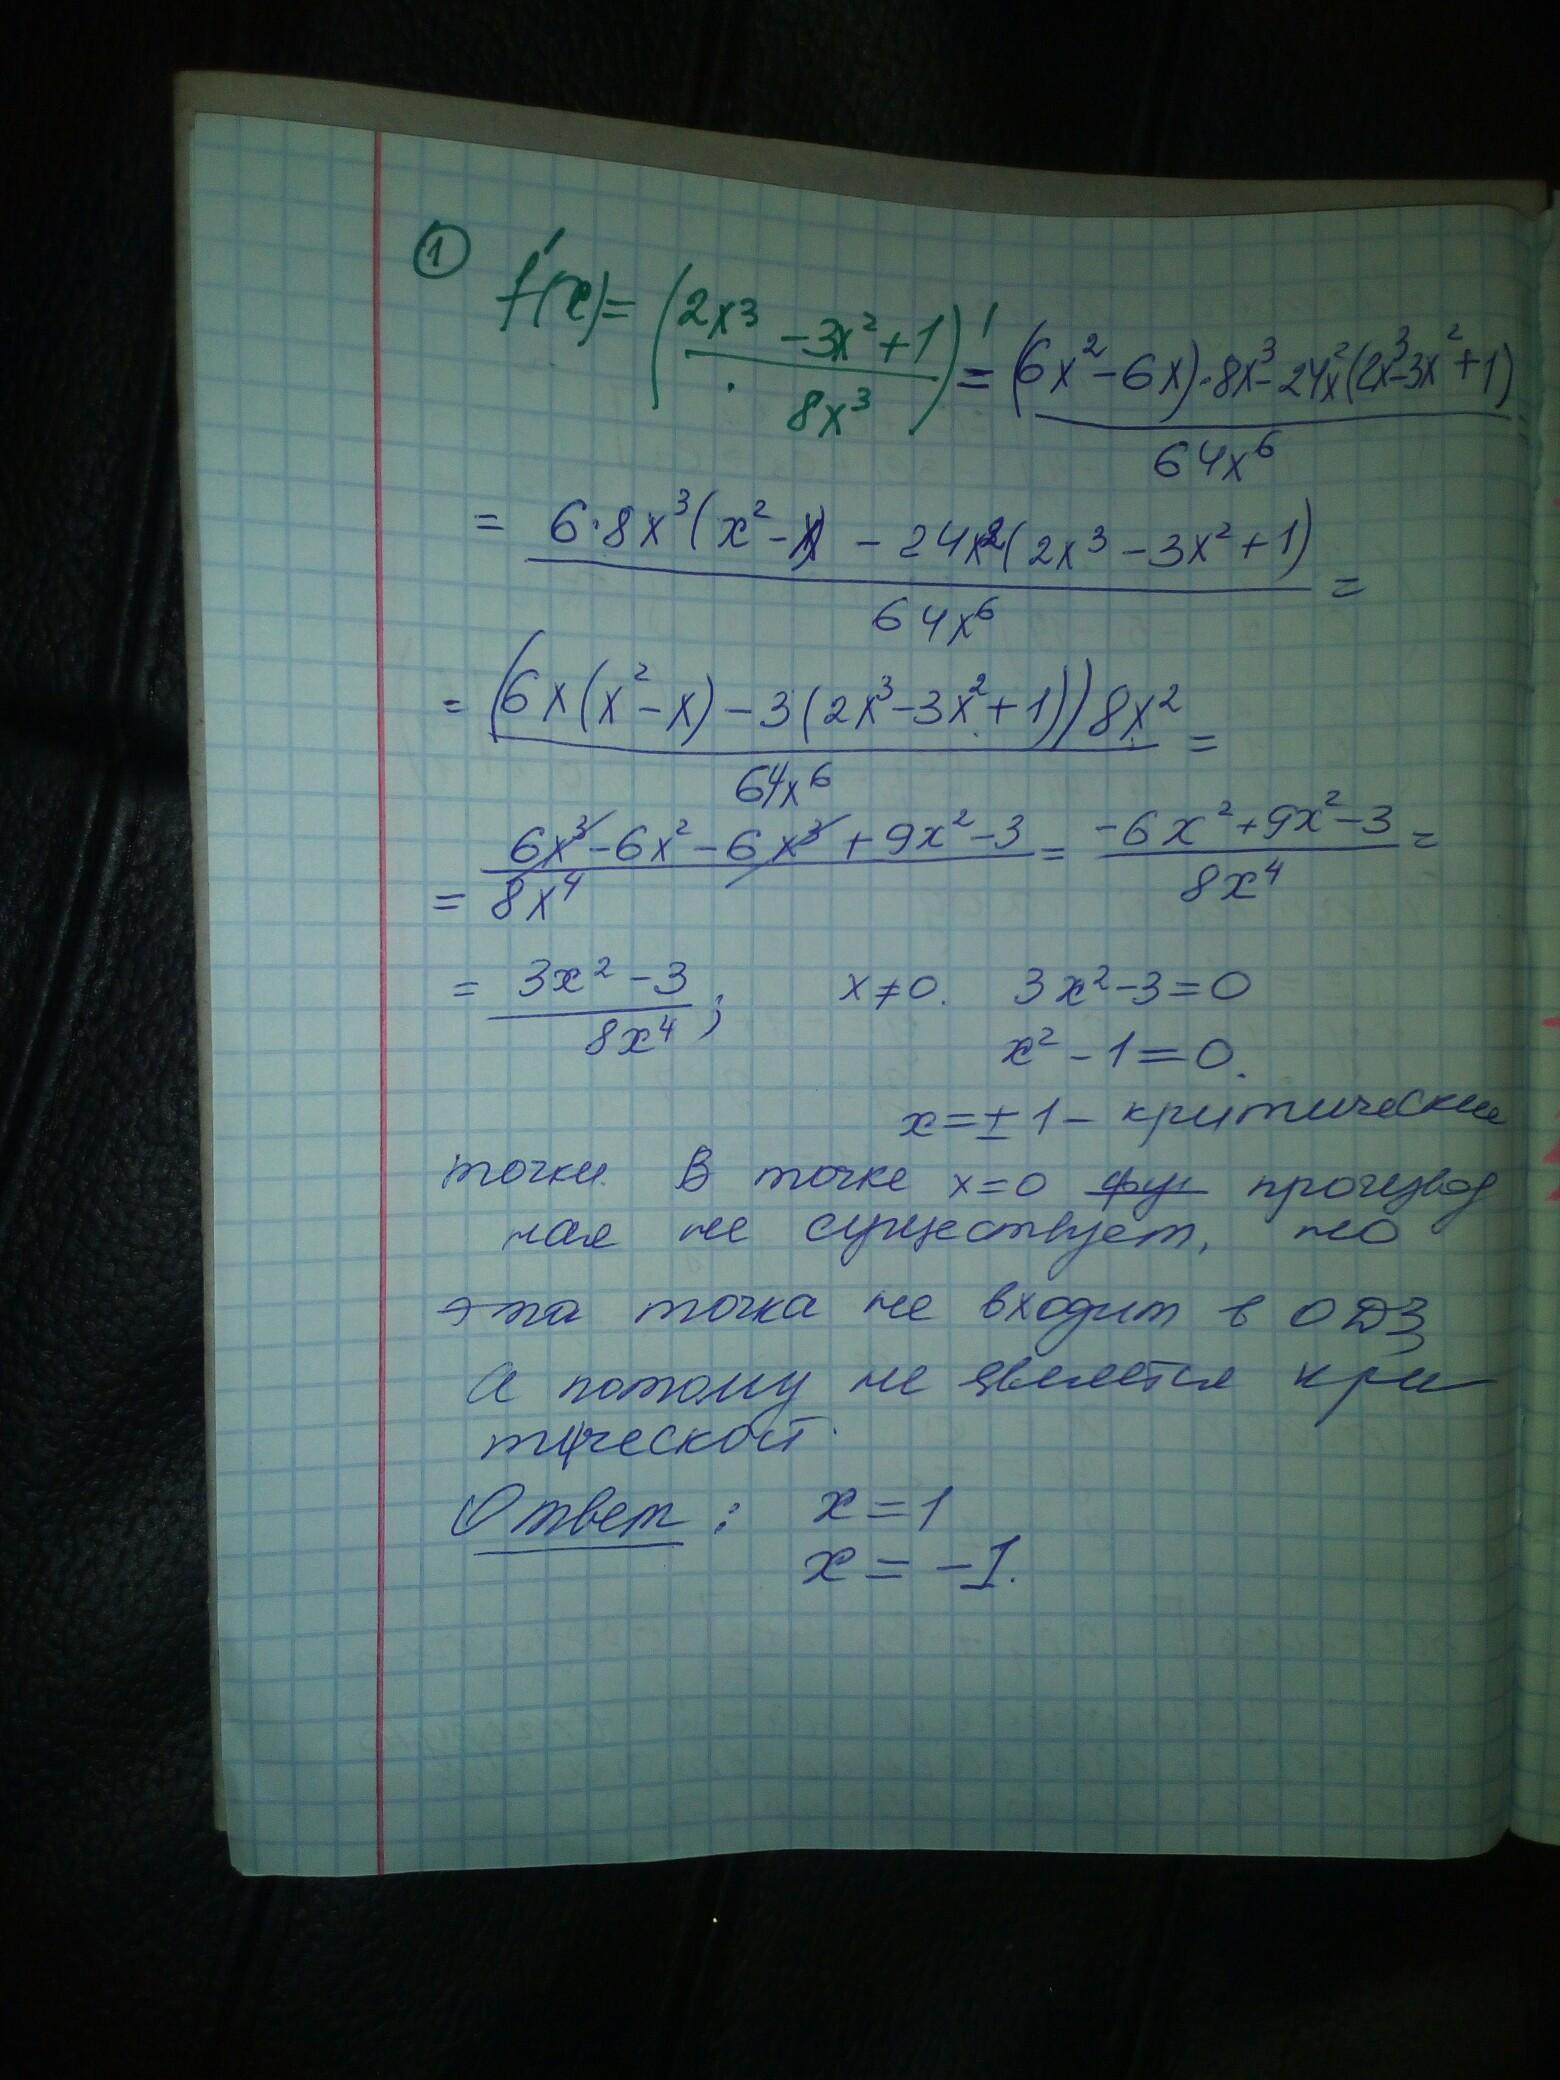 ① f'(x) = ((2x³ - 3x² + 1)/(8x³))' = ((6x² - 6x)·8x³ - 24x²(2x³ - 3x² + 1))/(64x⁶) =
= (6·8x³(x² - x) - 24x²(2x³ - 3x² + 1))/(64x⁶) =
= ((6x(x² - x) - 3(2x³ - 3x² + 1))8x²)/(64x⁶) =
= (6x³ - 6x² - 6x³ + 9x² - 3)/(8x⁴) = (-6x² + 9x² - 3)/(8x⁴) =
= (3x² - 3)/(8x⁴); x ≠ 0. 3x² - 3 = 0
x² - 1 = 0.
x = ± 1 - критические
точки. В точке x = 0 фун производ
ная не существует, но
эта точка не входит в ОДЗ
а потому не является кри
тической.
Ответ: x = 1
x = -1.